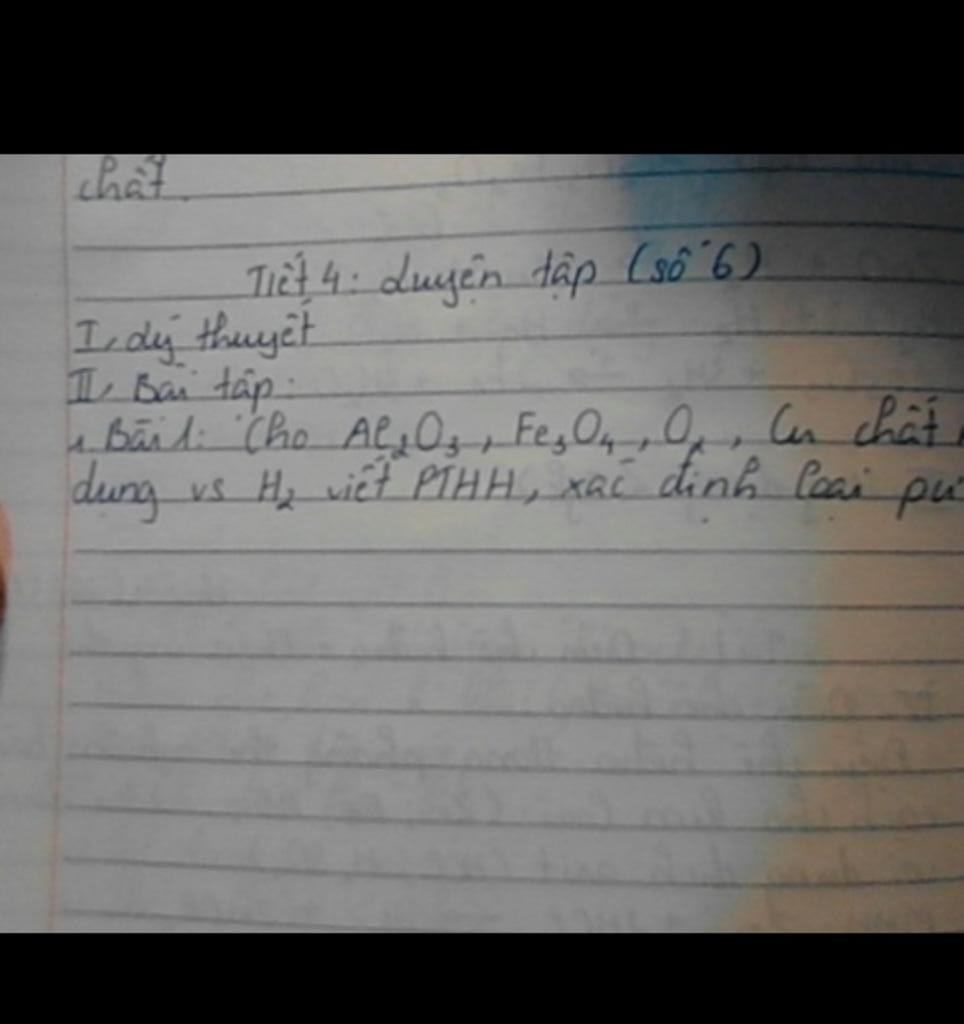 chất.
Tiết 4: Luyện tập (số 6)
I, Lý thuyết
II, Bài tập:
1 Bài 1: Cho Al2O3, Fe3O4, O2, Cu chất
dụng vs H2 viết PTHH, xác định loại pư